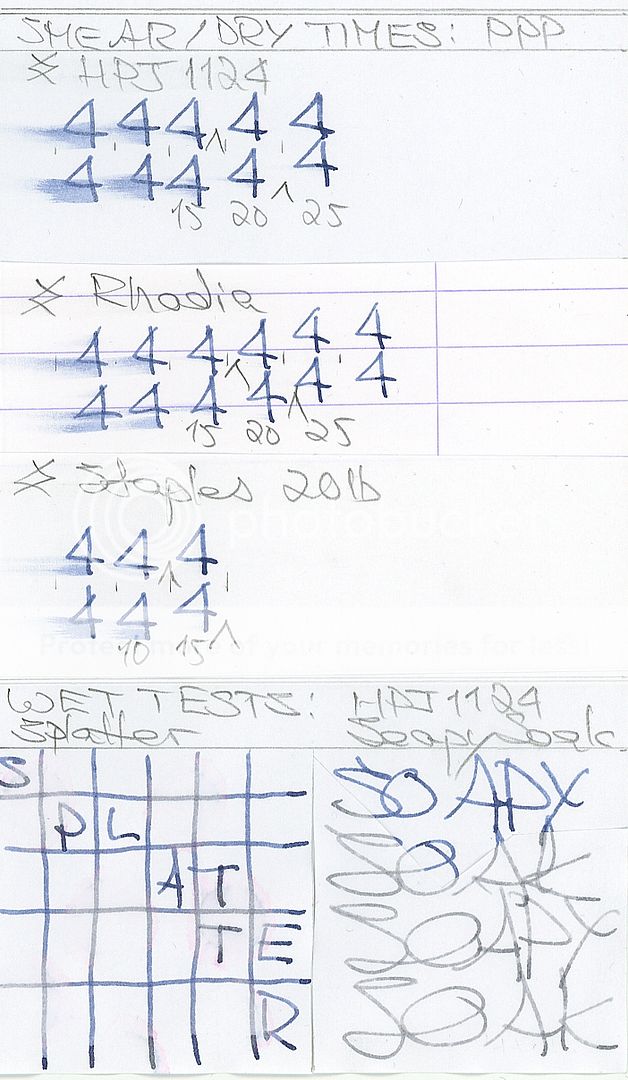 SMEAR/DRY TIMES: PPP
HPJ 1124
4 4 4 4 4
4 4 4 4 4
15 20 25
Rhodia
4 4 4 4 4 4
4 4 4 4 4 4
15 20 25
Staples 20lb
photobucket
4 4 4
4 4 4
Protect more of your memories for less!
10 15
WET TESTS: HPJ1124
Splatter Soapy Soak
S
P L
A T
T E
R
SOAPY
SOAK
SOAPY
SOAK